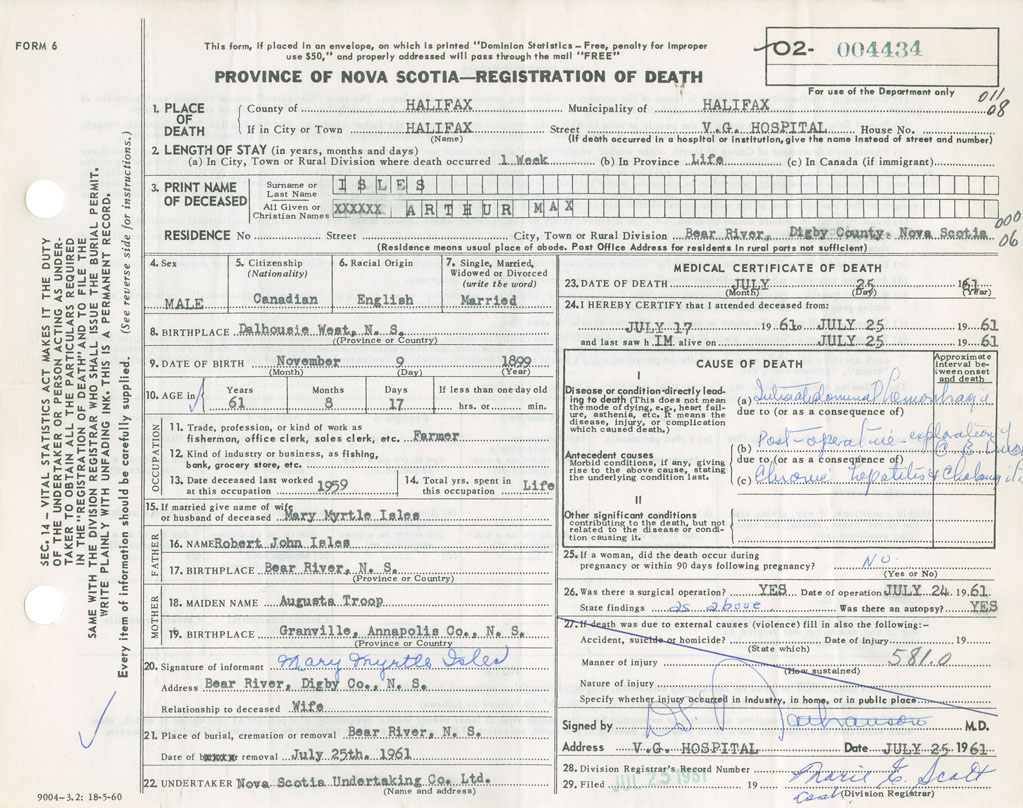 FORM 6
This form, if placed in an envelope, on which is printed "Dominion Statistics – Free, penalty for improper
use $50," and properly addressed will pass through the mail "FREE"
PROVINCE OF NOVA SCOTIA—REGISTRATION OF DEATH
02- 004434
For use of the Department only
011
08
1. PLACE OF DEATH
County of HALIFAX Municipality of HALIFAX
If in City or Town HALIFAX Street V.G. HOSPITAL House No.
(Name) (If death occurred in a hospital or institution, give the name instead of street and number)
2. LENGTH OF STAY (in years, months and days)
(a) In City, Town or Rural Division where death occurred 1 Week (b) In Province Life (c) In Canada (if immigrant)
3. PRINT NAME OF DECEASED
Surname or Last Name ISLES
All Given or Christian Names XXXXXX ARTHUR MAX
000
06
RESIDENCE No Street City, Town or Rural Division Bear River, Digby County, Nova Scotia
(Residence means usual place of abode. Post Office Address for residents in rural parts not sufficient)
4. Sex MALE
5. Citizenship (Nationality) Canadian
6. Racial Origin English
7. Single, Married, Widowed or Divorced (write the word) Married
8. BIRTHPLACE Dalhousie West, N. S.
(Province or Country)
9. DATE OF BIRTH November 9 1899
(Month) (Day) (Year)
10. AGE in Years Months Days If less than one day old
61 8 17 hrs. or min.
OCCUPATION
11. Trade, profession, or kind of work as
fisherman, office clerk, sales clerk, etc. Farmer
12. Kind of industry or business, as fishing,
bank, grocery store, etc.
13. Date deceased last worked at this occupation 1959
14. Total yrs. spent in this occupation Life
15. If married give name of wife
or husband of deceased Mary Myrtle Isles
FATHER
16. NAME Robert John Isles
17. BIRTHPLACE Bear River, N. S.
(Province or Country)
MOTHER
18. MAIDEN NAME Augusta Troop
19. BIRTHPLACE Granville, Annapolis Co., N. S.
(Province or Country)
20. Signature of informant Mary Myrtle Isles
Address Bear River, Digby Co., N. S.
Relationship to deceased Wife
21. Place of burial, cremation or removal Bear River, N. S.
Date of or removal July 25th. 1961
22. UNDERTAKER Nova Scotia Undertaking Co. Ltd.
(Name and address)
MEDICAL CERTIFICATE OF DEATH
23. DATE OF DEATH JULY 25 1961
(Month) (Day) (Year)
24. I HEREBY CERTIFY that I attended deceased from:
JULY 17 1961 to JULY 25 1961
and last saw h IM alive on JULY 25 1961
CAUSE OF DEATH
Approximate interval between onset and death
I
Disease or condition directly leading to death (This does not mean the mode of dying, e.g., heart failure, asthenia, etc. It means the disease, injury, or complication which caused death.)
(a) Intraabdominal hemorrhage
due to (or as a consequence of)
Antecedent causes
Morbid conditions, if any, giving rise to the above cause, stating the underlying condition last.
(b) Post-operative - exploration of C. B. Duct
due to (or as a consequence of)
(c) Chronic hepatitis & Cholangitis
II
Other significant conditions
contributing to the death, but not related to the disease or condition causing it.
25. If a woman, did the death occur during
pregnancy or within 90 days following pregnancy? No.
(Yes or No)
26. Was there a surgical operation? YES Date of operation JULY 24 1961
State findings as above. Was there an autopsy? YES
27. If death was due to external causes (violence) fill in also the following:-
Accident, suicide or homicide? Date of injury 19
(State which)
Manner of injury 581.0
(How sustained)
Nature of injury
Specify whether injury occurred in Industry, in home, or in public place
Signed by M.D.
Address V.G. HOSPITAL Date JULY 25 1961
28. Division Registrar's Record Number
29. Filed JUL 25 1961 19 Marie E. Scott
(Division Registrar)
SEC. 14 – VITAL STATISTICS ACT MAKES IT THE DUTY
OF THE UNDERTAKER OR PERSON ACTING AS UNDER-
TAKER TO OBTAIN ALL THE PARTICULARS REQUIRED
IN THE "REGISTRATION OF DEATH" AND TO FILE THE
SAME WITH THE DIVISION REGISTRAR WHO SHALL ISSUE THE BURIAL PERMIT.
WRITE PLAINLY WITH UNFADING INK. THIS IS A PERMANENT RECORD.
Every item of information should be carefully supplied. (See reverse side for instructions.)
9004-3.2: 18-5-60